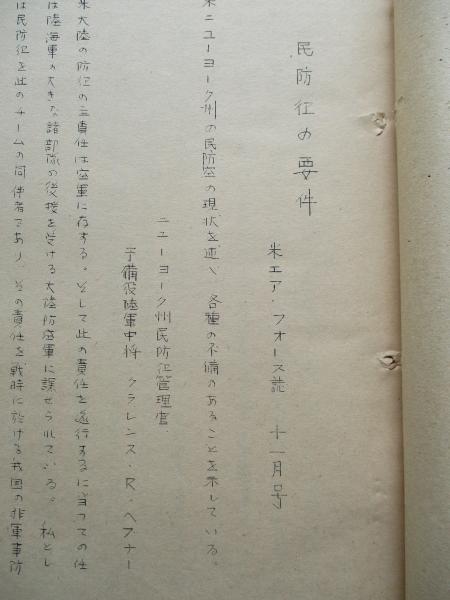 民防征の要件
米エア・フォース誌 十一月号
米ニューヨーク州の民防空の現状を述べ 各種の不備のあることを示している。
ニューヨーク州民防征管理官
予備役陸軍中将 クラレンス・R・ヘブナー
米大陸の防征の主責任は空軍に存する。そして此の責任を遂行するに当っての仕
は陸海軍の大きな諸部隊の後援を受ける大陸防空軍に課せられている。 私とし
は民防征を此のチームの同伴者であり、その責任を戦時に於ける我国の非軍事防